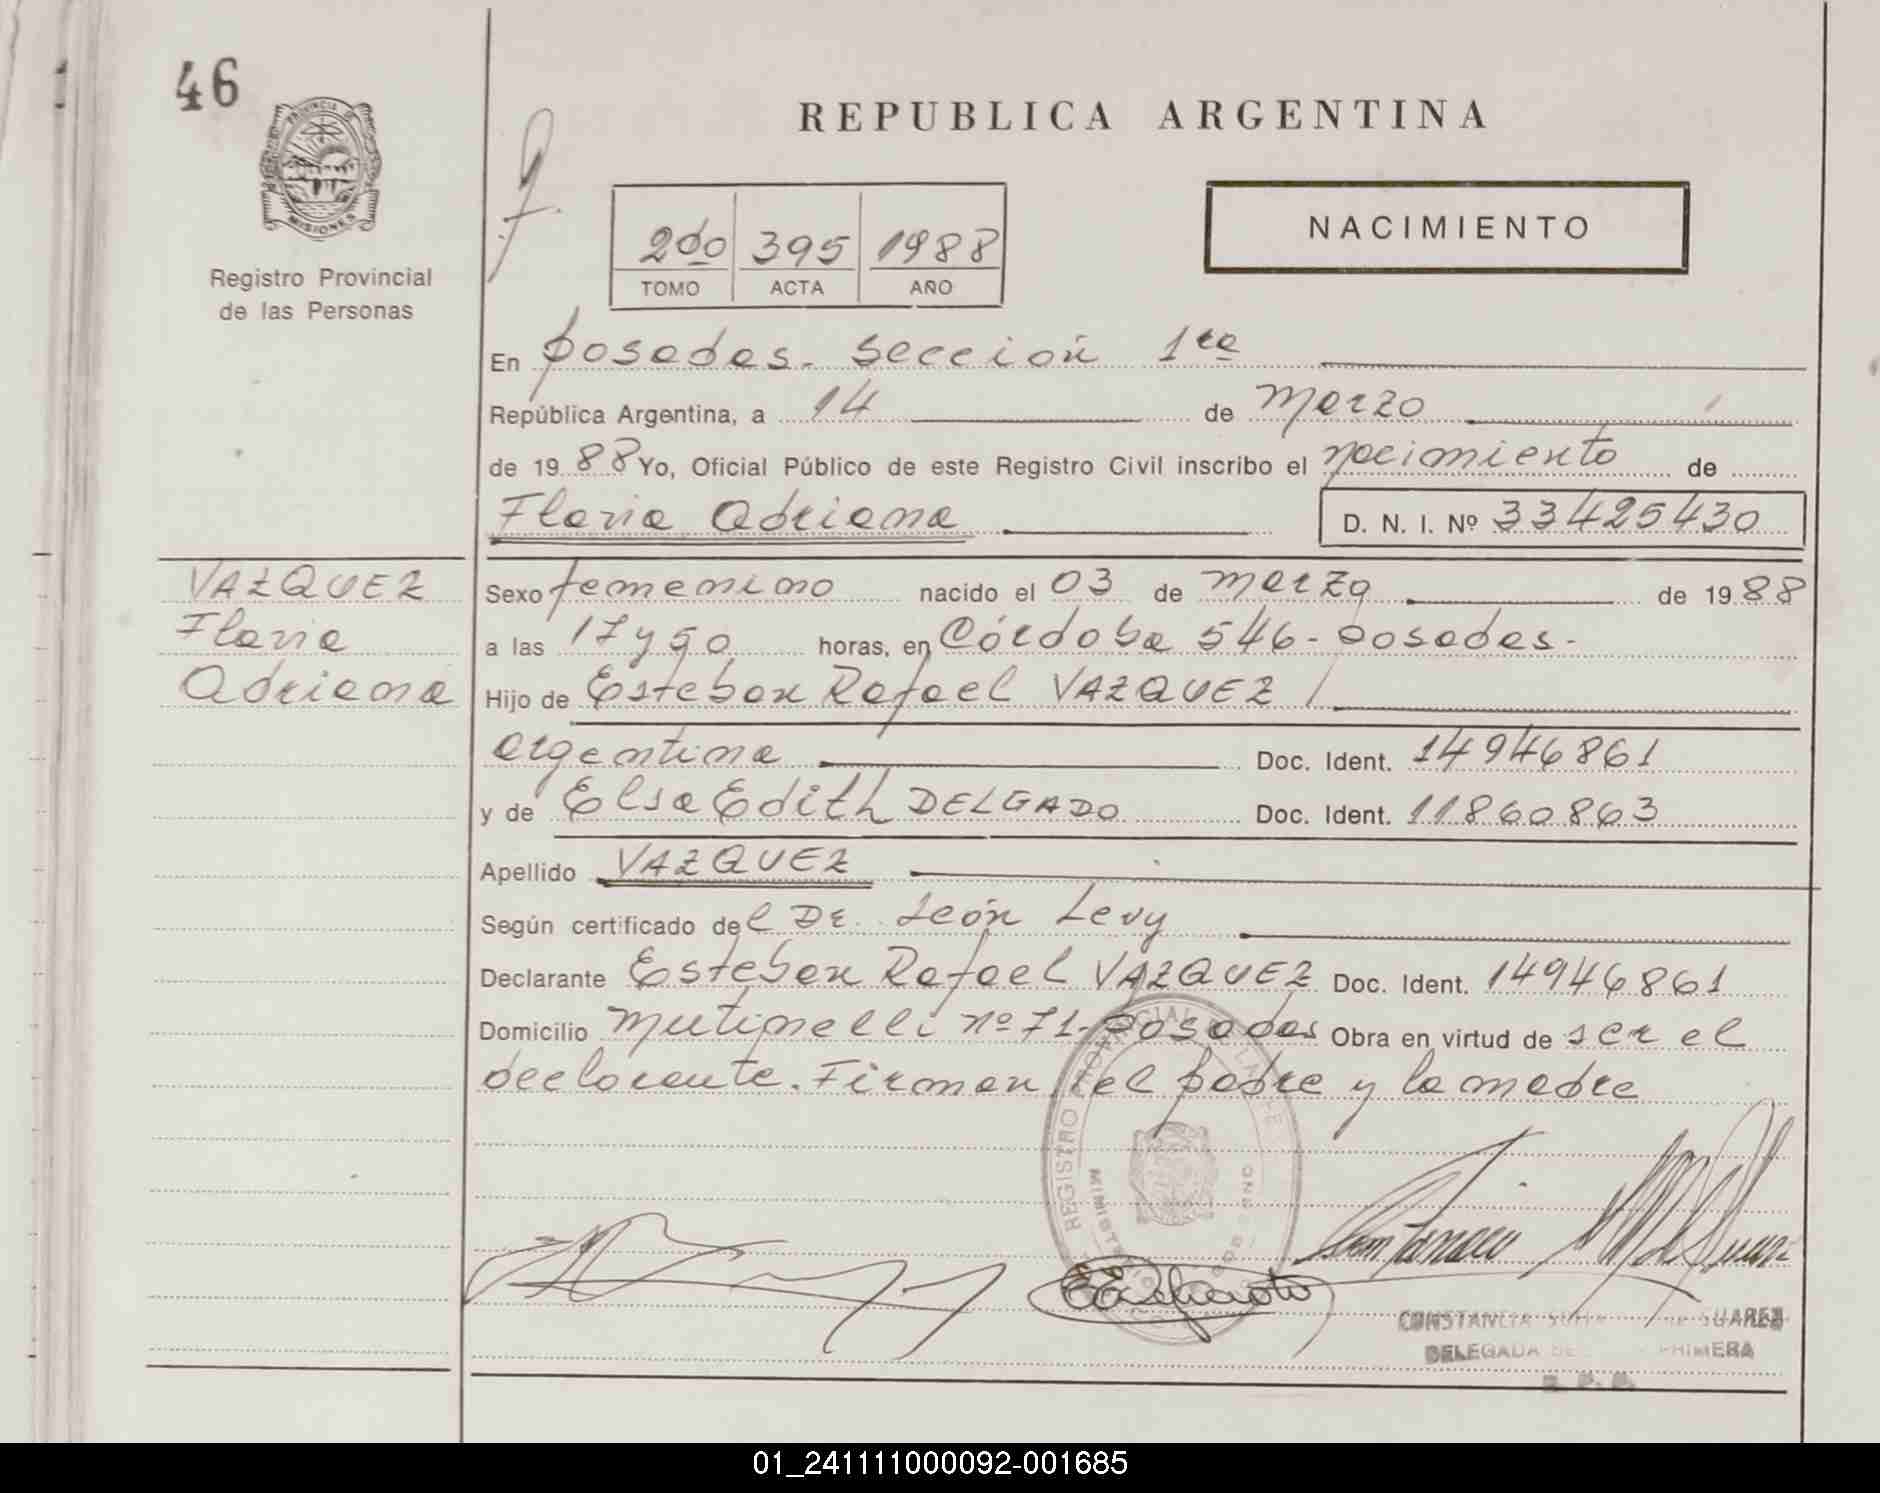 46
PROVINCIA DE
MISIONES
Registro Provincial
de las Personas
REPUBLICA ARGENTINA
NACIMIENTO
2do 395 1988
TOMO ACTA AÑO
En Posadas. Sección 1ra
República Argentina, a 14 de Marzo
de 1988 Yo, Oficial Público de este Registro Civil inscribo el nacimiento de
Flavia Adriana D. N. I. Nº 33425430
VAZQUEZ
Flavia
Adriana
Sexo femenino nacido el 03 de Marzo de 1988
a las 17 y 50 horas, en Córdoba 546 - Posadas -
Hijo de Esteban Rafael VAZQUEZ /
argentina Doc. Ident. 14946861
y de Elsa Edith DELGADO Doc. Ident. 11860863
Apellido VAZQUEZ
Según certificado del Dr. León Levy
Declarante Esteban Rafael VAZQUEZ Doc. Ident. 14946861
Domicilio Mutinelli nº 71 - Posadas Obra en virtud de ser el
declarante. Firman, el padre y la madre
REGISTRO PROVINCIAL DE LAS
CONSTANCIA SUAREZ
DELEGADA PRIMERA
R. P. P.
01_241111000092-001685